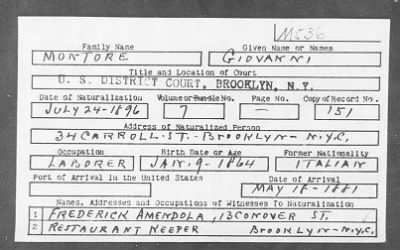 M536
Family Name Given Name or Names
MONTORE GIOVANNI
Title and Location of Court
U. S. DISTRICT COURT, BROOKLYN, N.Y.
Date of Naturalization Volume or Bundle No. Page No. Copy of Record No.
JULY 24-1896 7 — 151
Address of Naturalized Person
34 CARROLL. ST. - BROOKLYN - N.Y.C.
Occupation Birth Date or Age Former Nationality
LABORER JAN. 9-1864 ITALIAN
Port of Arrival in the United States Date of Arrival
MAY 18-1881
Names, Addresses and Occupations of Witnesses To Naturalization
1 FREDERICK AMENDOLA, 13 CONOVER ST.
2 RESTAURANT KEEPER BROOKLYN-N.Y.C.